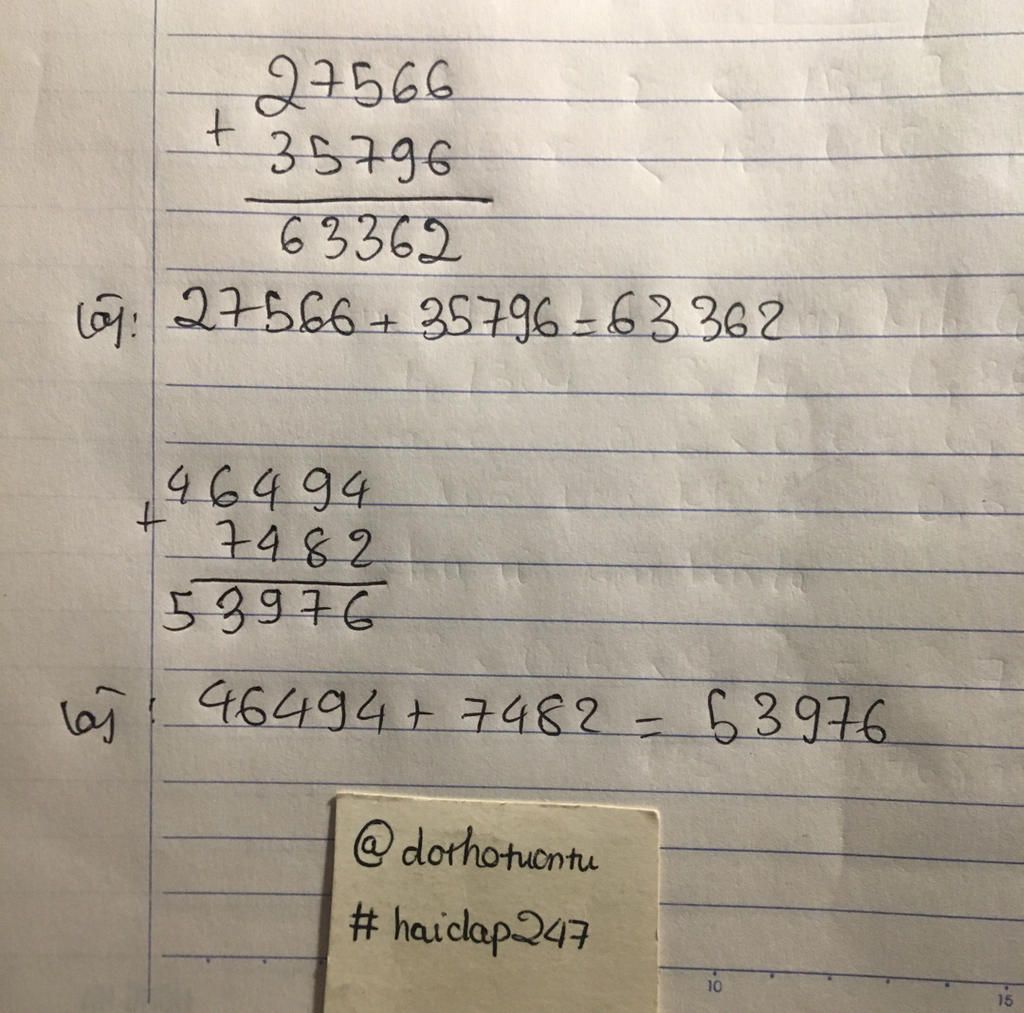 27566
+
35796
63362
Vậy: 27566 + 35796 = 63362
46494
+
7482
53976
Vậy: 46494 + 7482 = 53976
@dorhotuontu
#haidap247
10
15